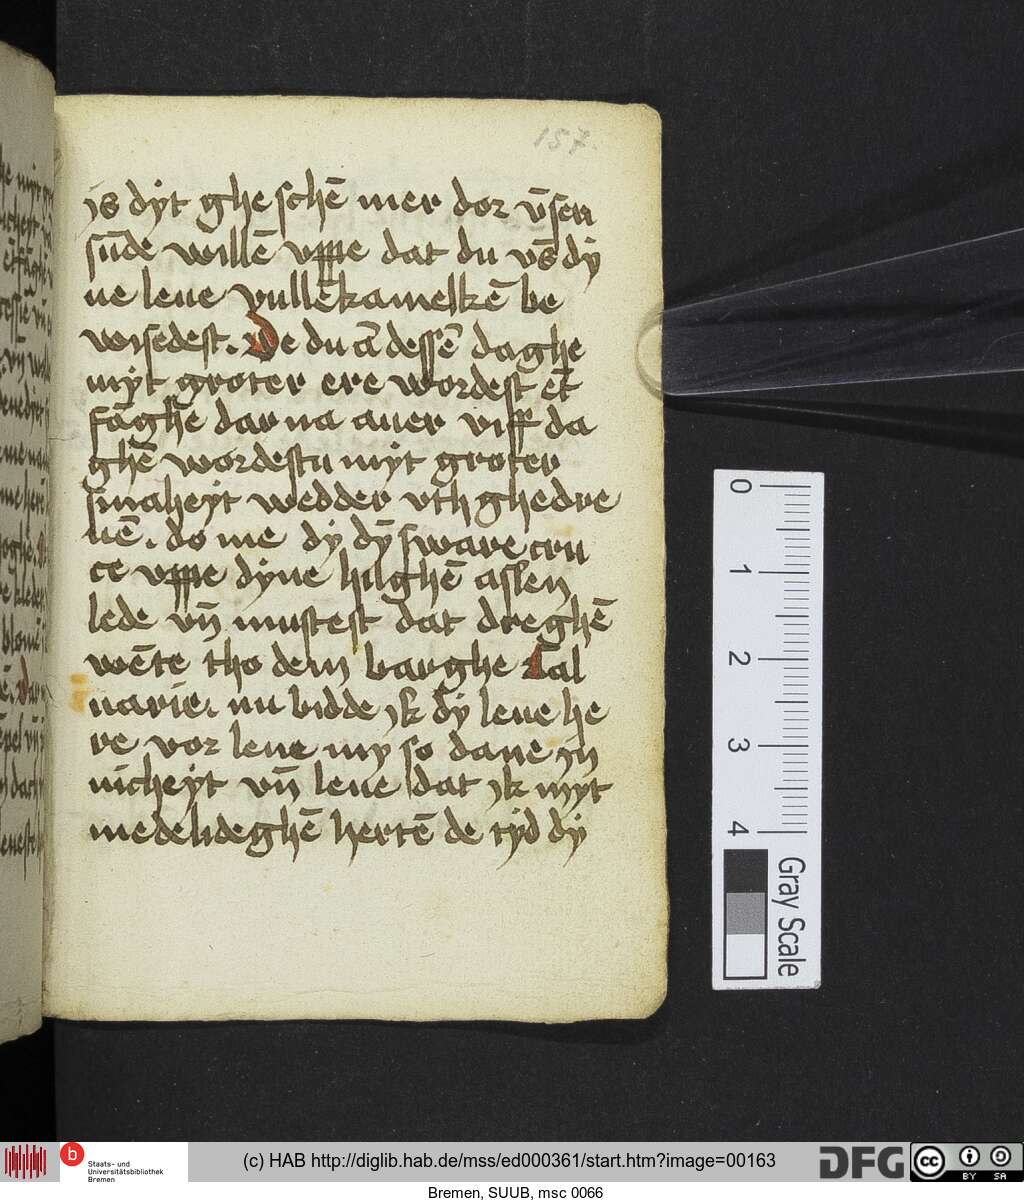 157.
is dyt ghe schē mer dor vˉsen
sūde willē vppe dat du vˉs dy
ne leue vullēkamelkē be
wisedest. De du ā dessē daghe
myt groter ere wordest ēt
fāghē dar na auer viff da
ghē wordestu myt groter
smaheyt wedder vth ghedre
uē. do me dy dȳ sware cru
ce vppe dyne hilghē aslen
lede vn̄ mustest dat dreghē
wēte tho dem barghe Cal
uarie. nu bidde ik dy leue he
re vor lene my so dane in
nicheyt vn̄ leue dat ik myt
medelideghē hertē de tyd dy
0
1
2
3
4
Gray Scale
b Staats- und
Universitätsbibliothek
Bremen
(c) HAB http://diglib.hab.de/mss/ed000361/start.htm?image=00163
DFG
cc BY SA
Bremen, SUUB, msc 0066